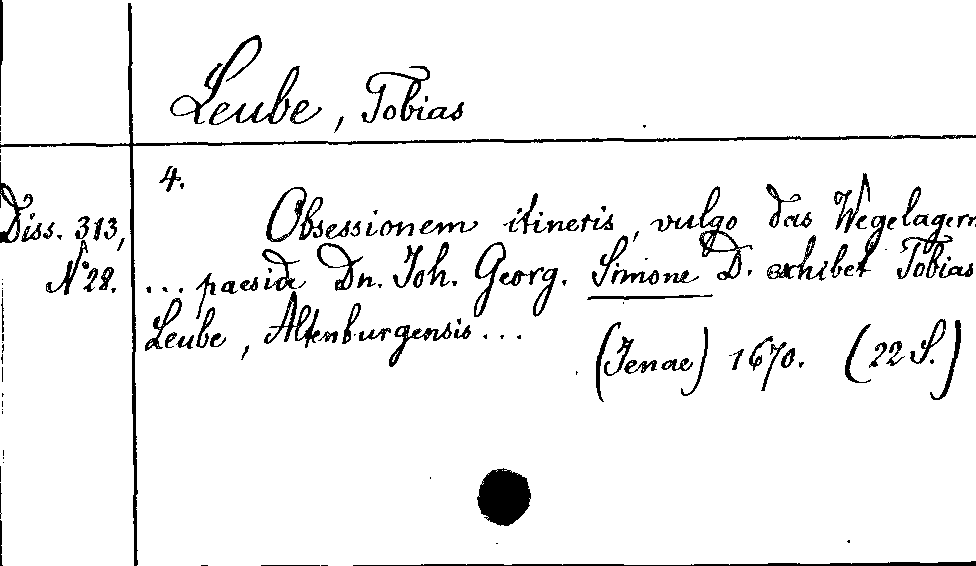 Leube, Tobias
4.
Diss. 313, Obsessionem itineris, vulgo das Wegelagern
N° 28. ... paeside Dn. Joh. Georg. Simone D. exhibet Tobias
Leube, Altenburgensis ...
(Jenae) 1670. (22 S.)